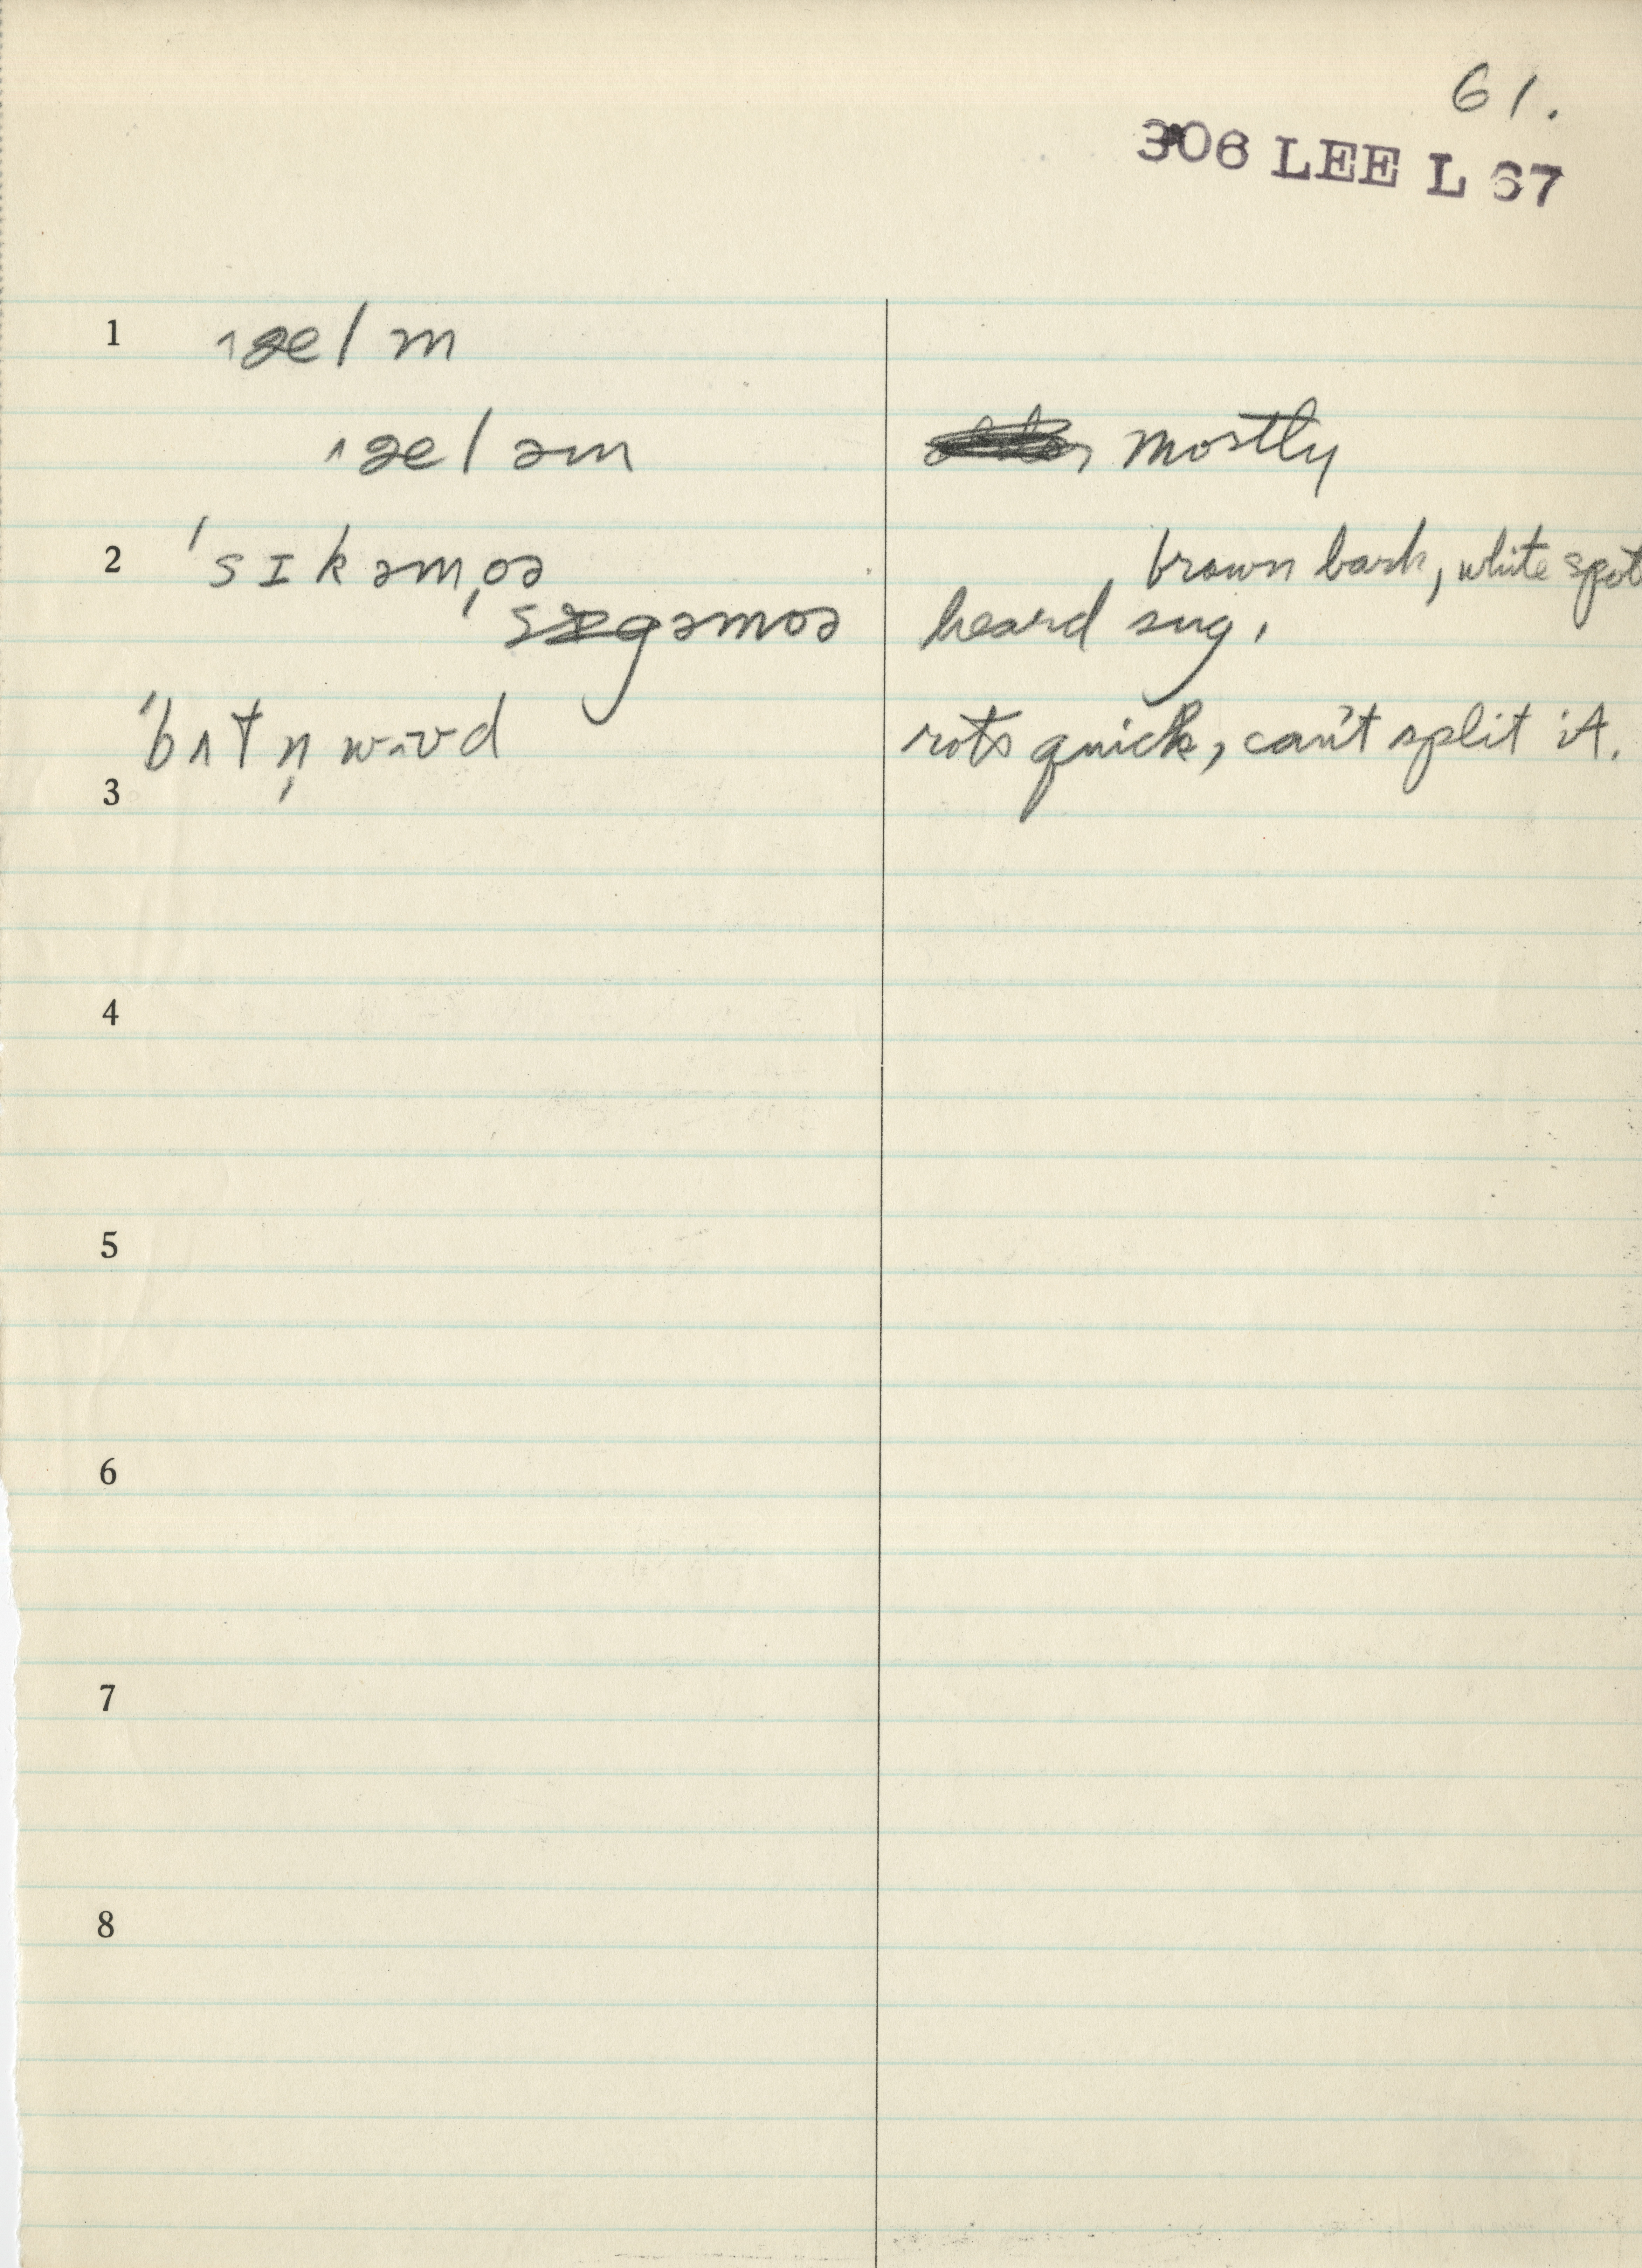 61.
306 LEE L 67
1 ɛlm
ɛləm mostly
2 ˈsɪkəmˌoə brown bark, white spot
sɪgəmoə heard sug,
ˈbʌtn̩ wʊd rots quick, can't split it.
3
4
5
6
7
8